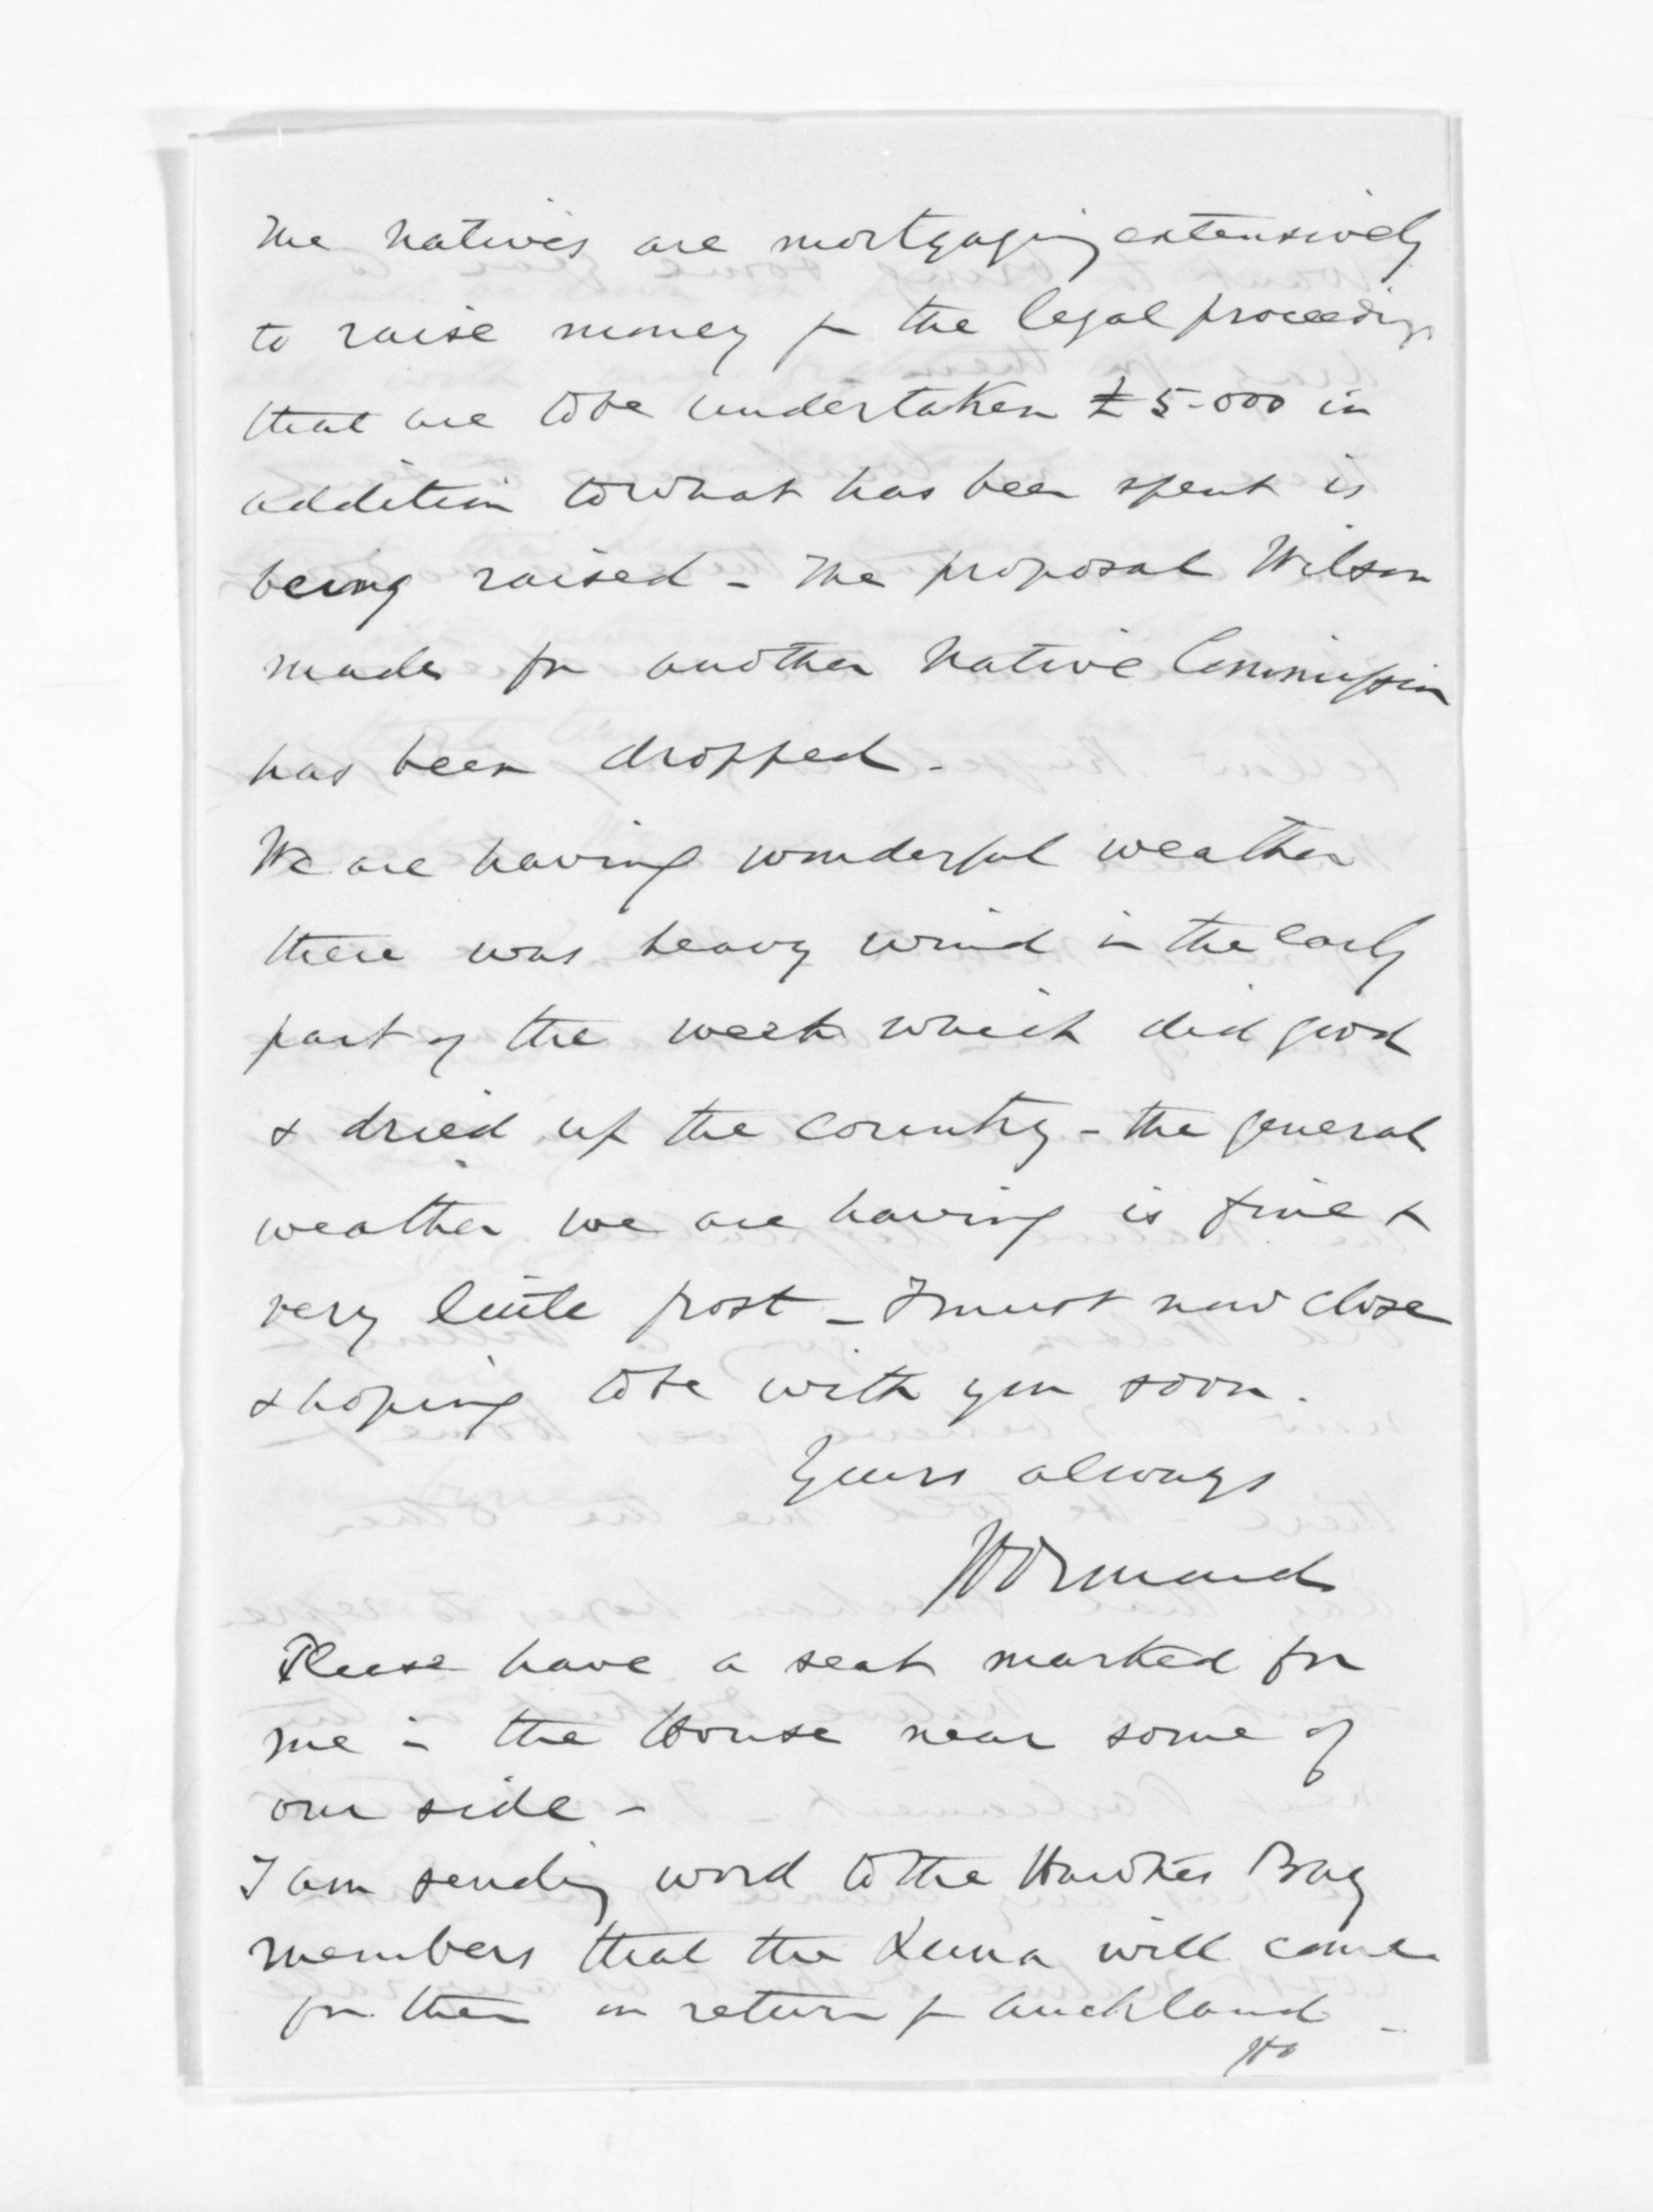 The Natives are mortgaging extensively
to raise money for the legal proceedings
that are to be undertaken £5.000 in
addition to what has been spent is
being raised - The proposal Wilson
made for another Native Commission
has been dropped -
We are having wonderful weather
there was heavy wind in the early
part of the week which did good
& dried up the country - the general
weather we are having is fine &
very little frost - I must now close
& hoping to be with you soon.
Yours always
JDOrmond
Please have a seat marked for
me in the House near some of
our side -
I am sending word to the Hawkes Bay
members that the Luna will come
for them on return fr Auckland -
JDO